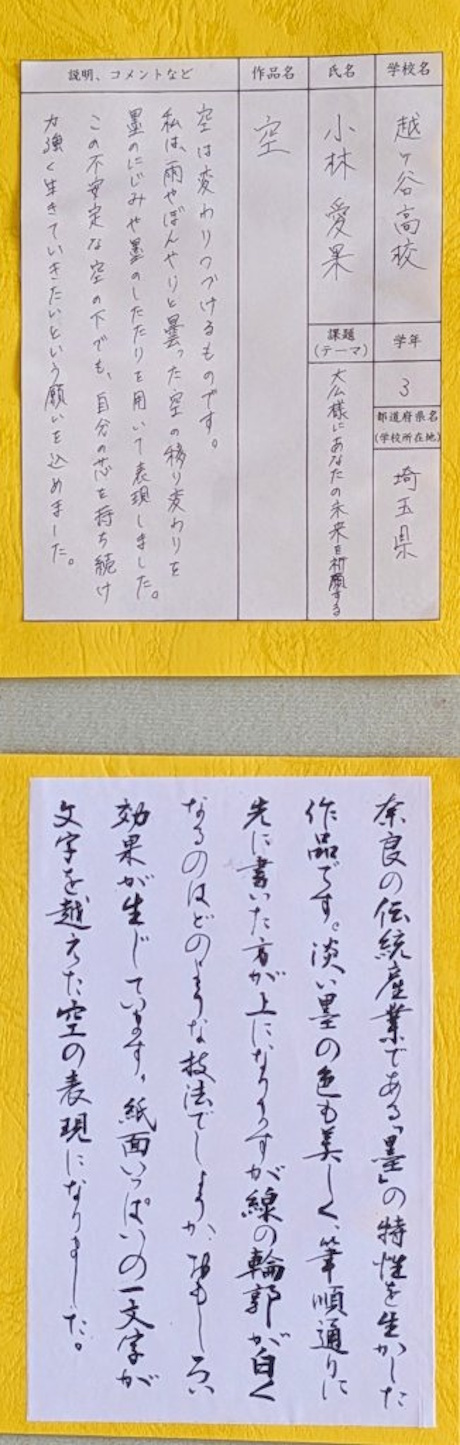 学校名
越ヶ谷高校
学年
3
都道府県名
(学校所在地)
埼玉県
氏名
小林 愛果
課題
(テーマ)
大仏様にあなたの未来を祈願する
作品名
空
説明、コメントなど
空は変わりつづけるものです。
私は、雨やぼんやりと曇った空の移り変わりを
墨のにじみや墨のしたたりを用いて表現しました。
この不安定な空の下でも、自分の芯を持ち続け
力強く生きていきたいという願いを込めました。
奈良の伝統産業である「墨」の特性を生かした
作品です。淡い墨の色も美しく、筆順通りに
先に書いた方が上になりますが線の輪郭が白く
なるのはどのような技法でしょうか、おもしろい
効果が生じています。紙面いっぱいの一文字が
文字を越えた空の表現になりました。